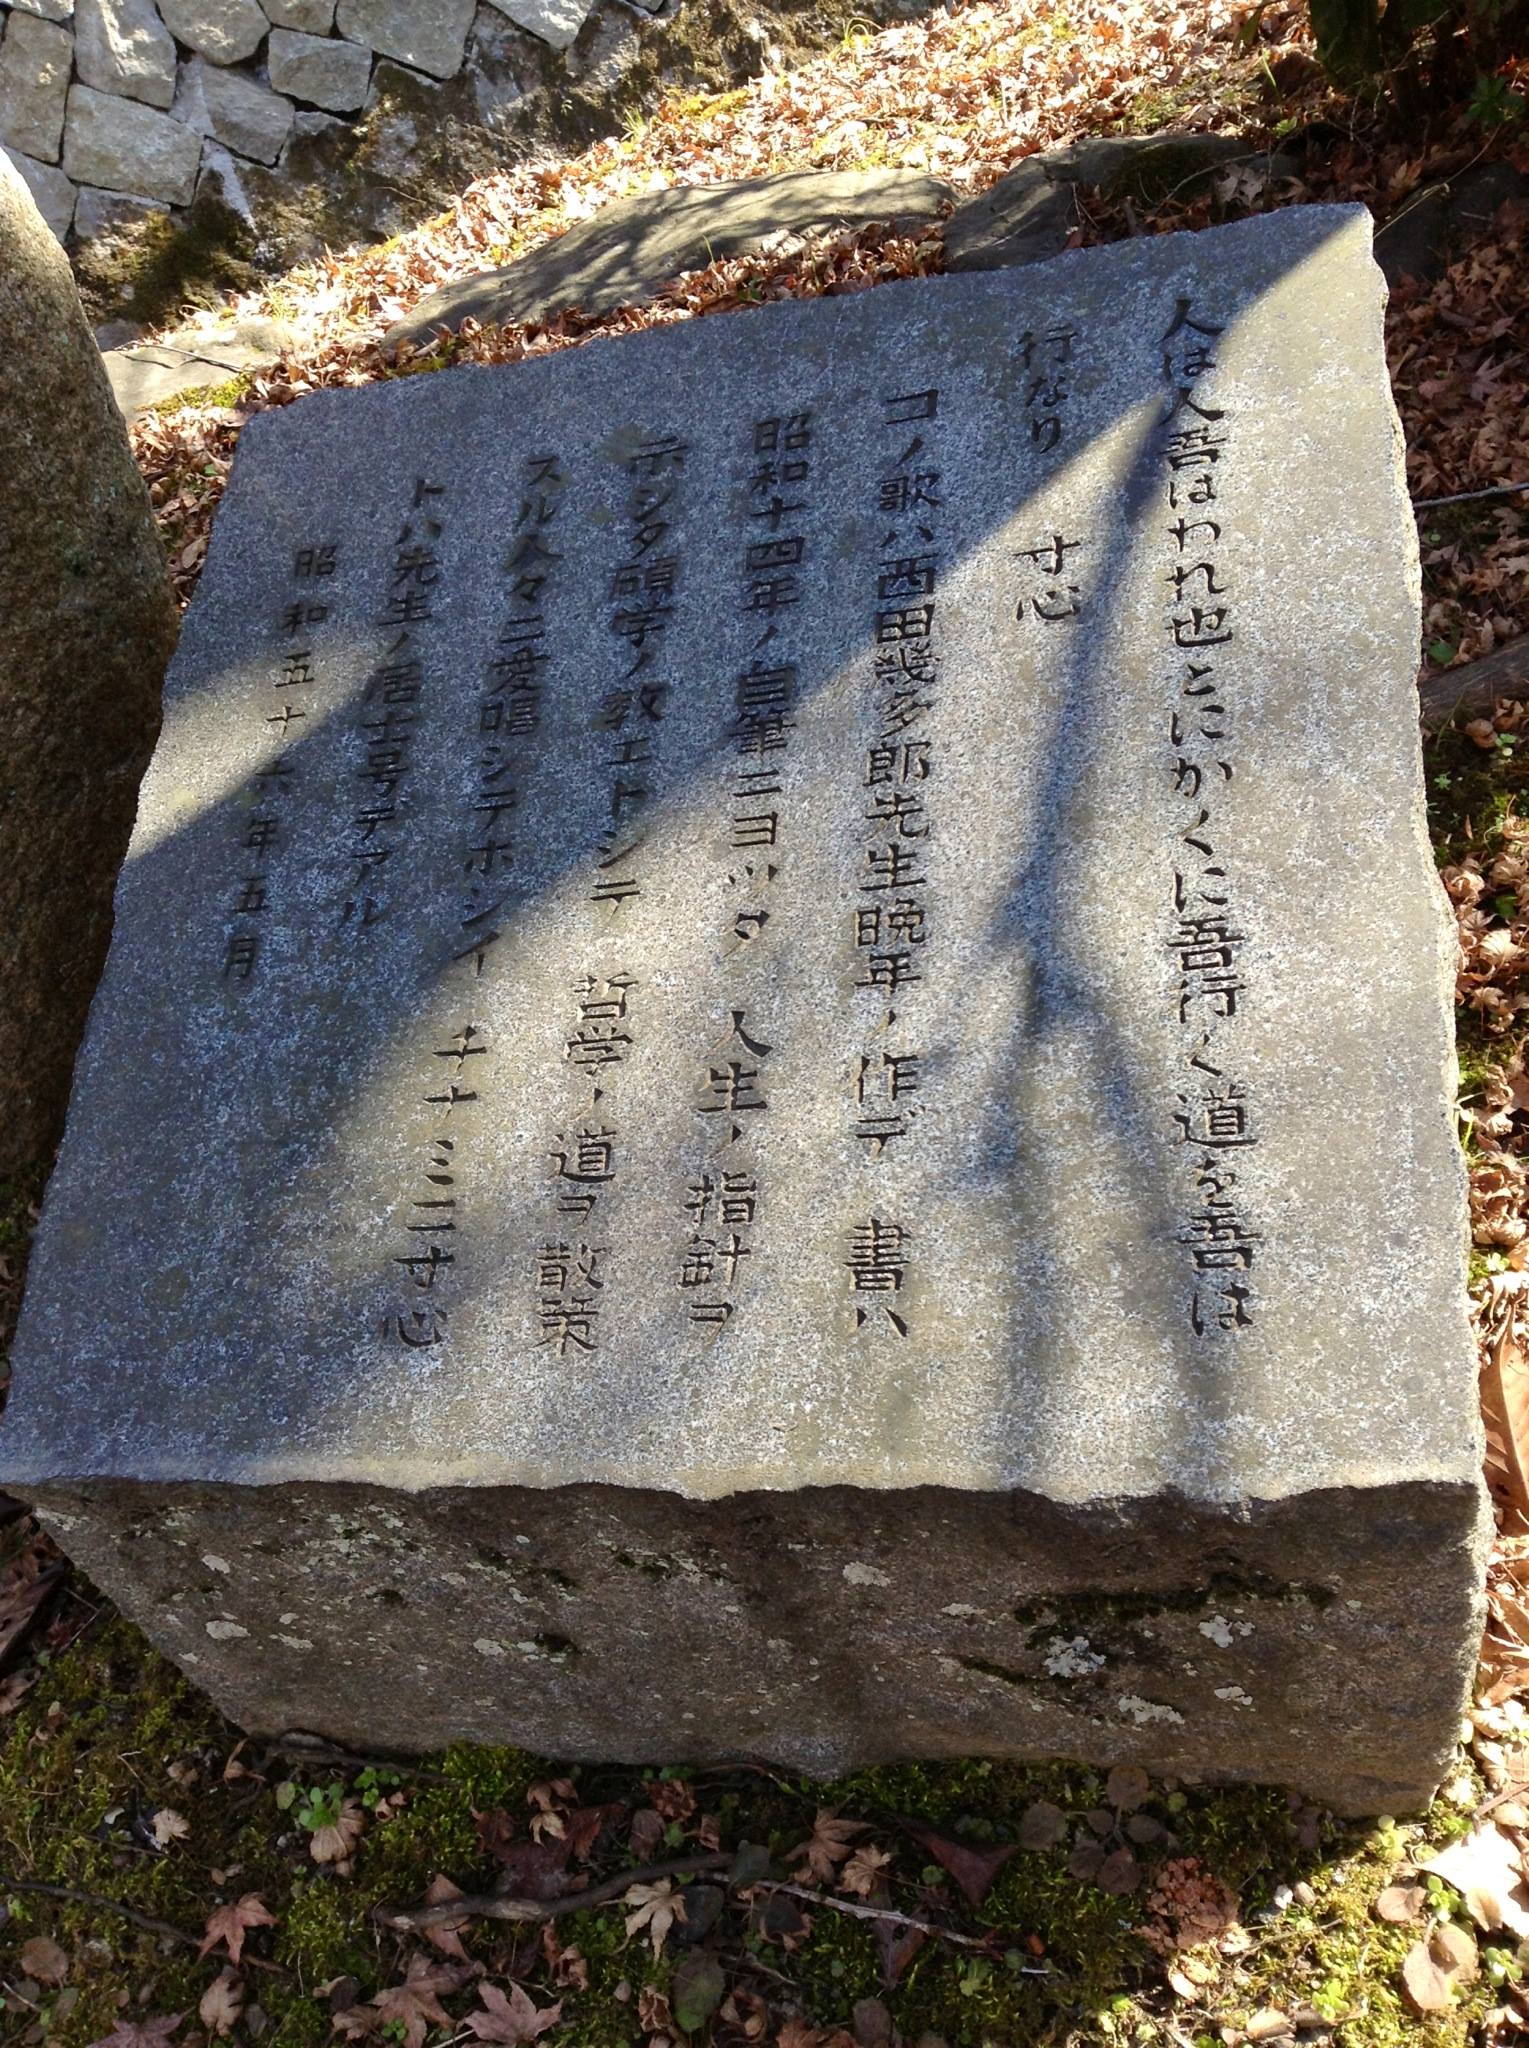 人は人吾はわれ也とにかくに吾行く道を吾は
行なり　寸心
コノ歌ハ西田幾多郎先生晩年ノ作デ　書ハ
昭和十四年ノ自筆ニヨッタ　人生ノ指針ヲ
示シタ碩学ノ教エトシテ　哲学ノ道ヲ散策
スル人々ニ愛唱シテホシイ　ナナミニ寸心
トハ先生ノ居士号デアル
昭和五十六年五月